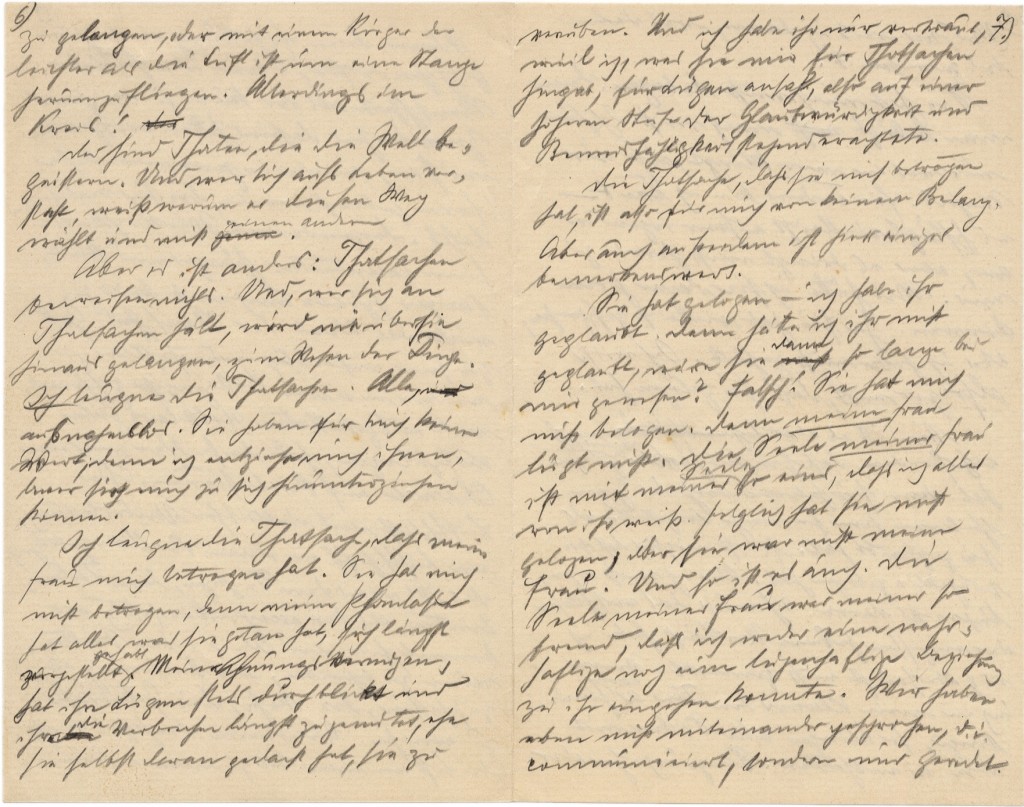 6)
zu gelangen, oder mit einem Körper der
leichter als die Luft ist um eine Stange
herumzufliegen. Allerdings im
Kreis!
das sind Thaten, die die Welt be-
geistern. Und wer sich aufs Leben ver-
steht, weiß warum er diesen Weg
wählt und nicht jenen einen andern.
Aber es ist anders: Thatsachen
beweisen nichts. Und, wer sich an
Thatsachen hält, wird nie über sie
hinaus gelangen, zum Wesen der Dinge.
Ich leugne die Thatsachen. Alle,
ausnahmslos. Sie haben für mich keinen
Wert, denn ich entziehe mich ihnen,
bevor sie mich zu sich hinunterziehen
können.
Ich leugne die Thatsache, dass meine
Frau mich betrogen hat. Sie hat mich
nicht betrogen, denn meine Phantasie
hat alles, was sie getan hat, sich längst
vorgestellt gehabt. Mein Ahnungsvermögen,
hat ihre Lügen stets durchblickt und
ihr die Verbrechen längst zugemutet, ehe
sie selbst daran gedacht hat, sie zu
7.)
verüben. Und ich habe ihr nur vertraut,
weil ich, was sie mir für Thatsachen
hingab, für Lügen ansah, also auf einer
höheren Stufe der Glaubwürdigkeit und
stehend erachtete.
die Thatsache, dass sie mich betrogen
hat, ist also für mich von keinem Belang.
Aber auch ausserdem ist hier einiges
bemerkenswert.
Sie hat gelogen – ich habe ihr
geglaubt. denn hätte ich ihr nicht
geglaubt, wäre sie dann so lange bei
mir gewesen? Falsch! Sie hat mich
nicht belogen. denn meine Frau
lügt nicht. die Seele meiner Frau
ist mit meiner Seele so eines, dass ich alles
von ihr weiß. folglich hat sie nicht
gelogen; aber sie war nicht meine
Frau. Und so ist es auch. die
Seele meiner Frau war meiner so
fremd, dass ich weder eine wahr-
haftige noch eine lügenhaftige Beziehung
zu ihr eingehen konnte. Wir haben
eben nicht miteinander gesprochen, d.i.
communiciert, sondern nur geredet.